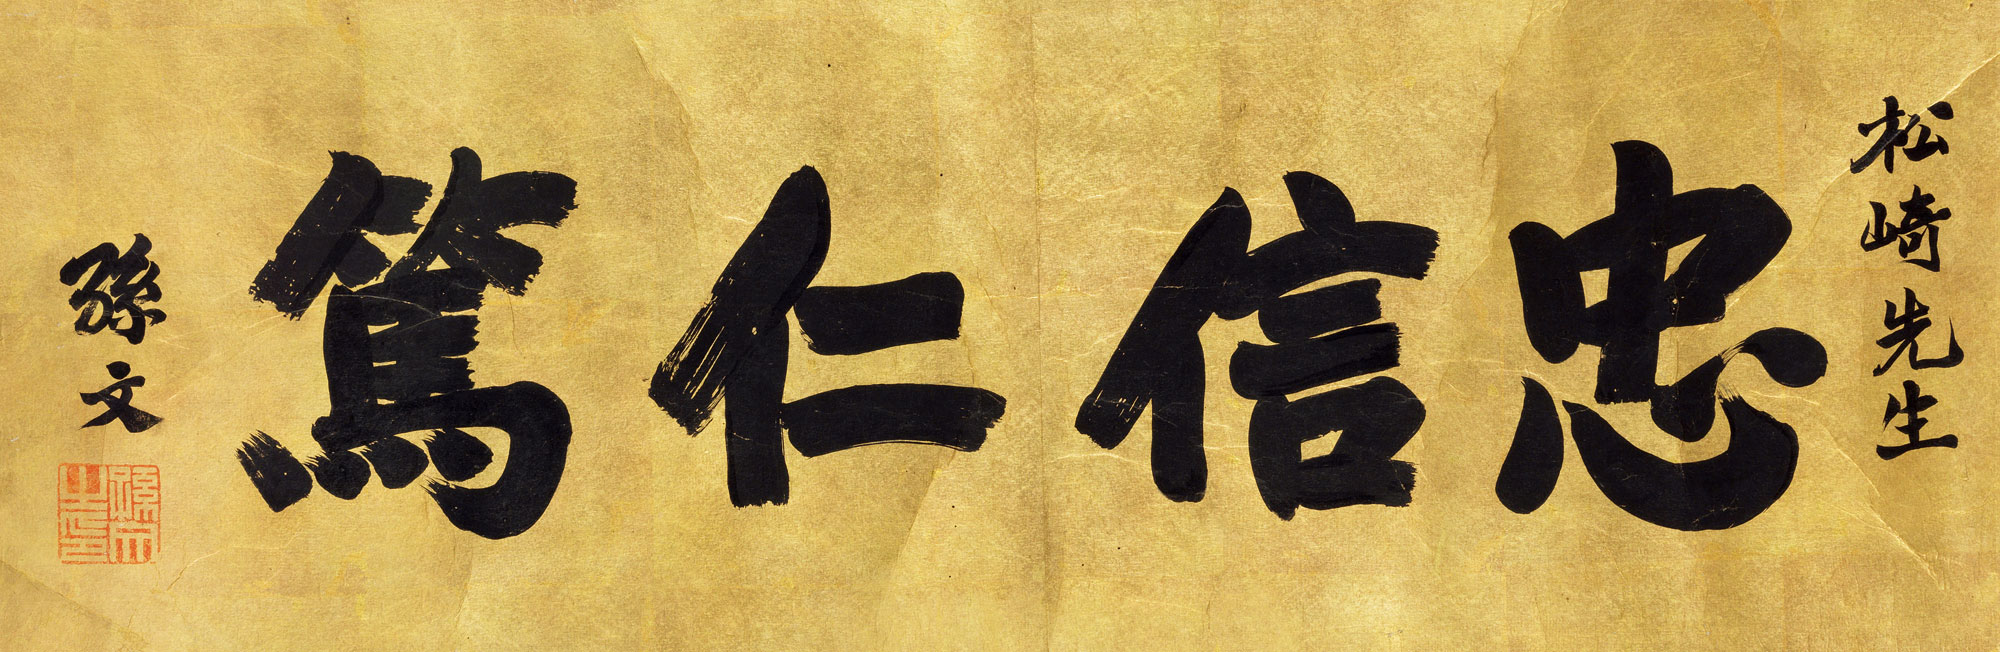 松崎先生
忠信仁篤
孫文
孫文之印